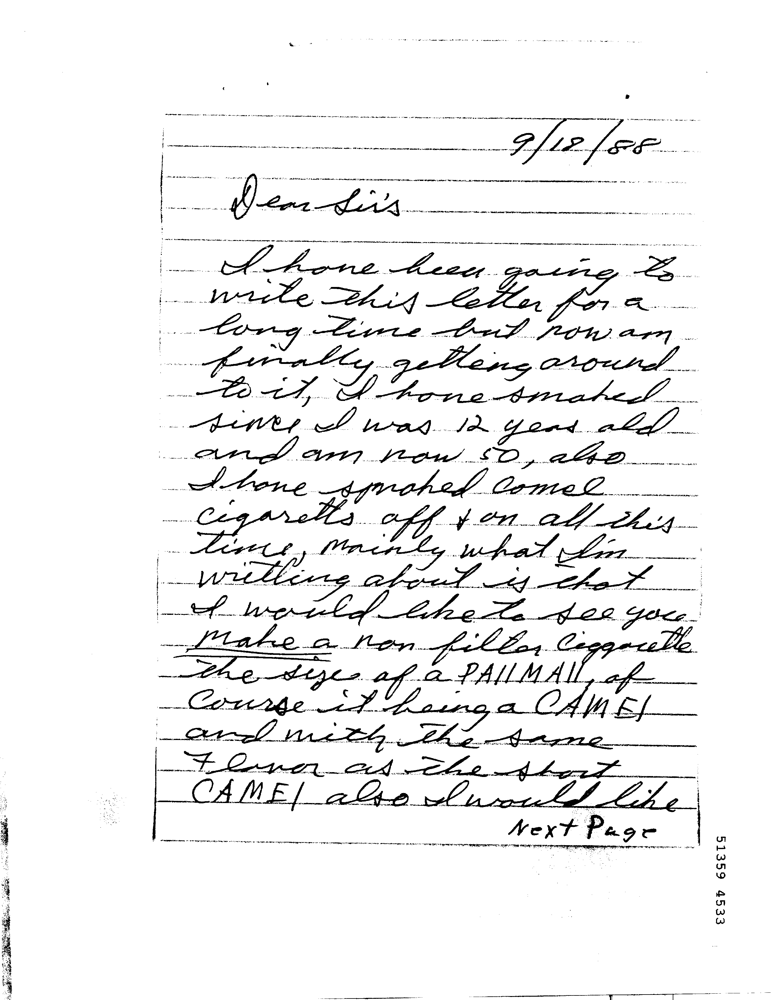 9/18/88
Dear Sir's
I have been going to
write this letter for a
long time but now am
finally getting around
to it, I have smoked
since I was 12 years old
and am now 50, also
I have smoked Camel
cigaretts off & on all this
time, mainly what I'm
writting about is that
I would like to see you
make a non filter Ciggarette
the size of a PAllMAll, of
Course it being a CAMEl
and with the same
Flavor as the short
CAMEl also I would like
Next Page
51359 4533